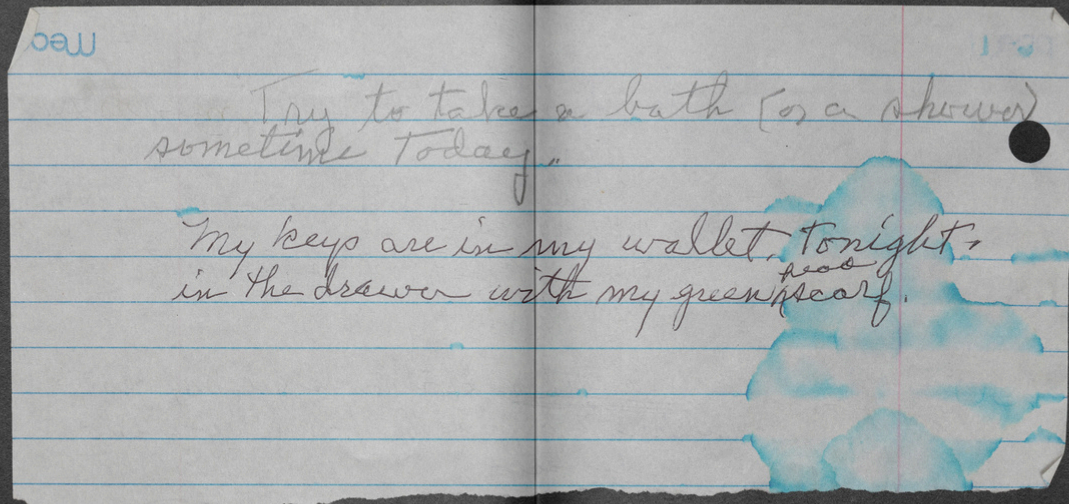 Try to take a bath (or a shower)
sometime Today.
My keys are in my wallet. Tonight.
head
in the drawer with my green scarf.